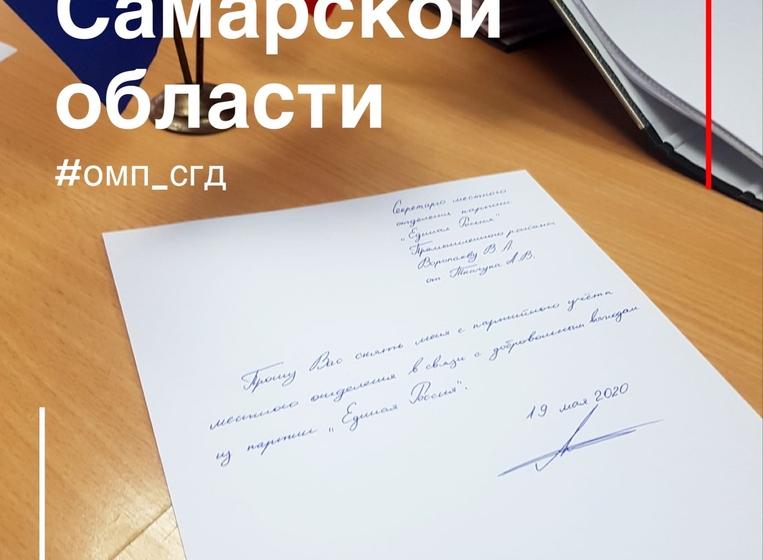 Самарской
области
#омп_сгд
Секретарю местного
отделения партии
"Единая Россия"
Промышленного района
Воропаеву В. А.
от Ткачука А.В.
Прошу Вас снять меня с партийного учёта
местного отделения в связи с добровольным выходом
из партии „Единая Россия".
19 мая 2020